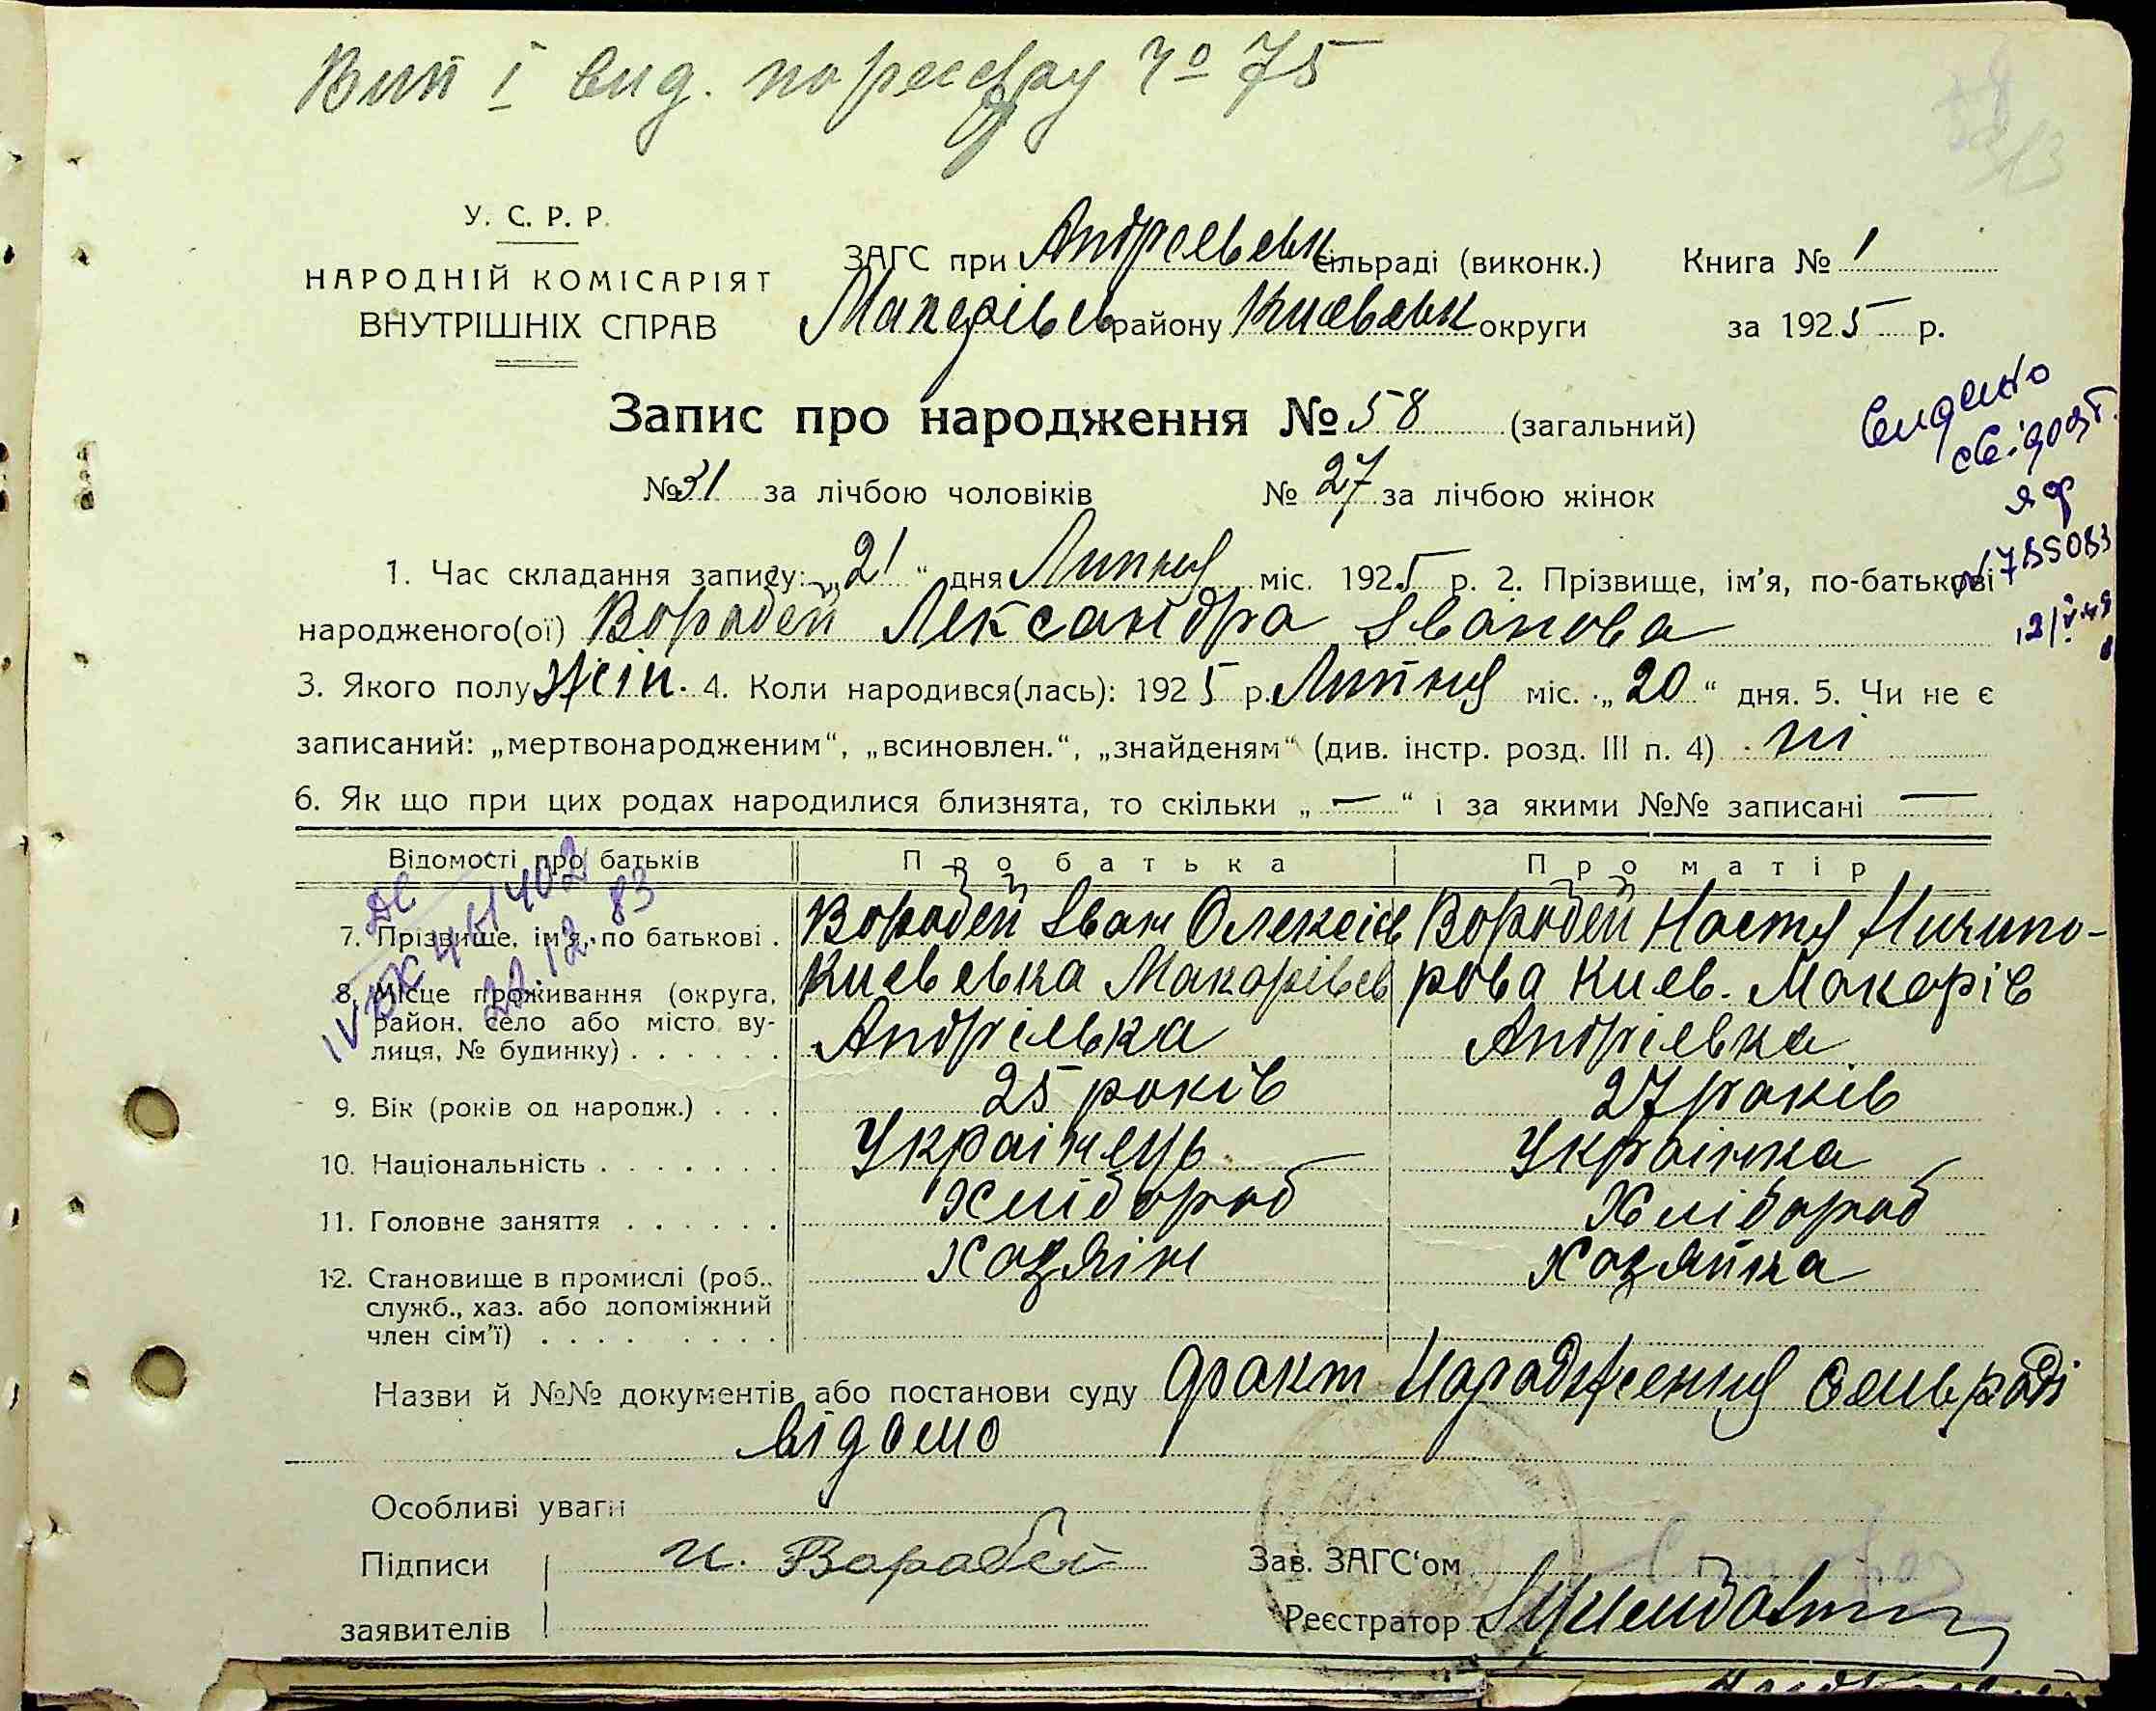 Вип І вид. по реєстру № 75
У. С. Р. Р.
НАРОДНІЙ КОМІСАРІЯТ
ВНУТРІШНІХ СПРАВ
ЗАГС при Андреевськ сільраді (виконк.) Книга № 1
Макарівсь району Київськ округи за 1925 р.
Запис про народження № 58 (загальний)
№ 31 за лічбою чоловіків № 27 за лічбою жінок
видано
свідоцт.
ЯФ
12/V 49
1. Час складання запису: „21“ дня Липня міс. 1925 р. 2. Прізвище, ім’я, по-батькові
народженого(ої) Воробей Лександра Іванова
3. Якого полу жін. 4. Коли народився(лась): 1925 р. Липня міс. „20“ дня. 5. Чи не є
записаний: „мертвонародженим“, „всиновлен.“, „знайденям“ (див. інстр. розд. III п. 4) ні
6. Як що при цих родах народилися близнята, то скільки „—“ і за якими №№ записані —
Відомості про батьків Про батька Про матір
7. Прізвище, ім’я, по батькові . Воробей Іван Олексієв Воробей Настя Ничипо-
8. Місце проживання (округа, район, село або місто, ву-лиця, № будинку) . . . . . . Киевська Макарівсь рова Киев. Макарів
Андріевка Андріевка
22.12.83
9. Вік (років од народж.) . . . 25 років 27 років
10. Національність . . . . . . . Українець Українка
11. Головне заняття . . . . . . Хлібороб Хлібороб
12. Становище в промислі (роб., Хозяін Хозяйка
служб., хаз. або допоміжний
член сім’ї) . . . . . . . . .
Назви й №№ документів або постанови суду факт народження сельраді
відомо
Особливі уваги
Підписи И. Воробей Зав. ЗАГС‘ом
заявителів Реєстратор